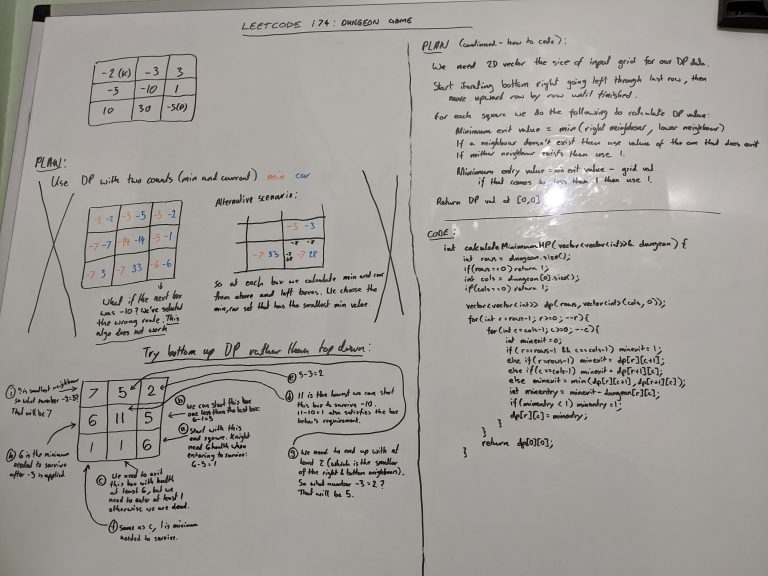 LEETCODE 174: DUNGEON GAME
-2(K) -3 3
-5 -10 1
10 30 -5(P)
PLAN:
Use DP with two counts (min and current) min cur
-2 -2 -5 -5 -5 -2
-7 -7 -14 -14 -5 -1
-7 3 -7 33 -6 -6
What if the next box
was -10? We've selected
the wrong route. This
algo does not work
Alternative scenario:
-5 -3
-7 33 -7 28
So at each box we calculate min and cur
from above and left boxes. We choose the
min,cur set that has the smallest min value.
Try bottom up DP rather than top down:
7 5 2
6 11 5
1 1 6
(i) 5 is smallest neighbour
so what number -2=5?
That will be 7
(h) 6 is the minimum
needed to survive
after -5 is applied
(b) we can start this box
one less than the last box:
6-1=5
(a) Start with this
end square. Knight
need 6 health when
entering to survive:
6-5=1
(c) We need to exit
this box with health
at least 6, but we
need to enter at least 1
otherwise we are dead.
(f) Same as c, 1 is minimum
needed to survive.
(e) 5-3=2
(d) 11 is the lowest we can start
this box to survive -10.
11-10=1 also satisfies the box
below's requirement.
(g) We need to end up with at
least 2 (which is the smaller
of the right & bottom neighbours).
So what number -3=2?
That will be 5.
PLAN (continued - how to code):
We need 2D vector the size of input grid for our DP data.
Start iterating bottom right going left through last row, then
move upward row by row until finished.
For each square we do the following to calculate DP value:
Minimum exit value = min(right neighbour, lower neighbour)
If a neighbour doesn't exist then use value of the one that does exist
If neither neighbour exists then use 1.
Minimum entry value = min exit value - grid val
if that comes to less than 1 then use 1.
Return DP val at [0,0]
CODE:
int calculateMinimumHP(vector<vector<int>>& dungeon) {
int rows = dungeon.size();
if(rows==0) return 1;
int cols = dungeon[0].size();
if(cols==0) return 1;
vector<vector<int>> dp(rows, vector<int>(cols, 0));
for(int r=rows-1; r>=0; --r){
for(int c=cols-1; c>=0; --c){
int minexit=0;
if(r==rows-1 && c==cols-1) minexit=1;
else if(r==rows-1) minexit = dp[r][c+1];
else if(c==cols-1) minexit = dp[r+1][c];
else minexit=min(dp[r][c+1], dp[r+1][c]);
int minentry = minexit-dungeon[r][c];
if(minentry < 1) minentry=1;
dp[r][c]=minentry;
}
}
return dp[0][0];
}